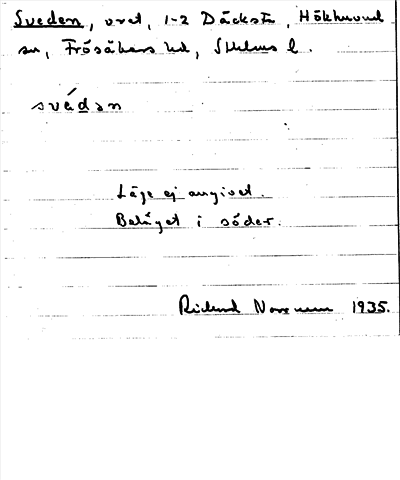 Sveden, vret, 1-2 Däcksta, Hökhuvud
sn, Frösåkers hd, Sthlms l.
svédən
Läge ej angivet.
Beläget i söder.
Rickard Norrman 1935.